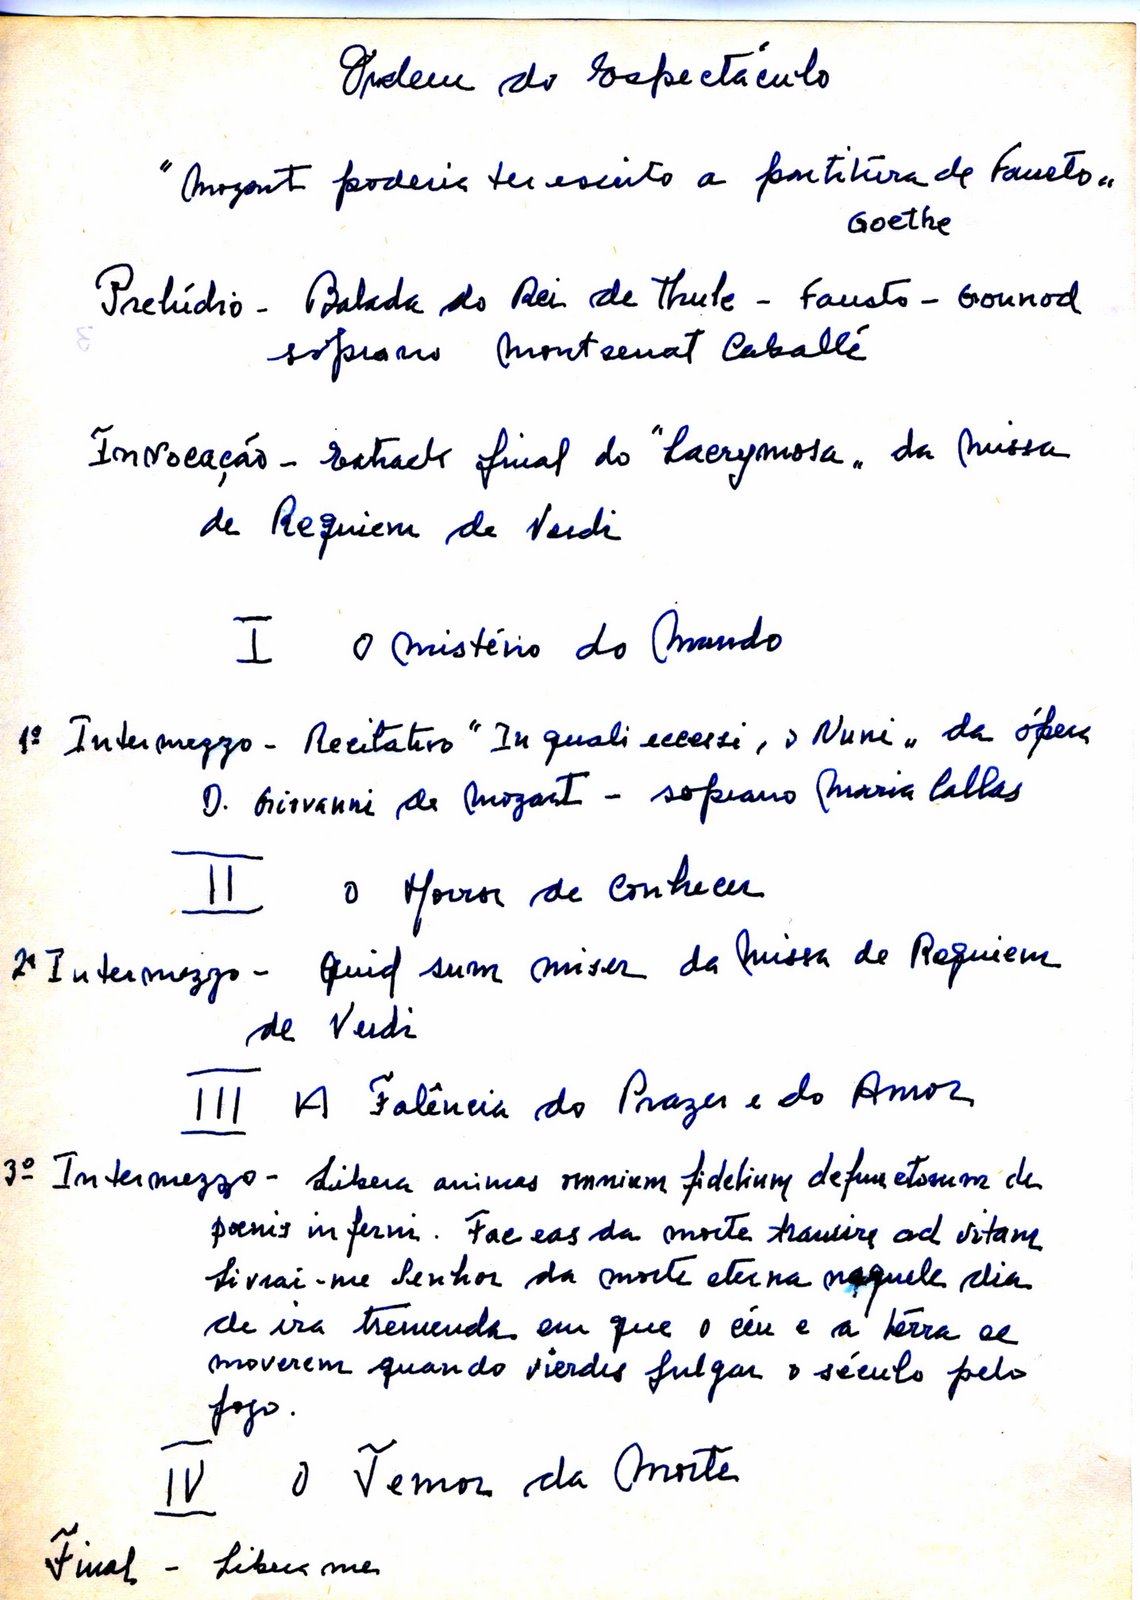 Ordem do Espectáculo
"Mozart poderia ter escrito a partitura de Fausto"
Goethe
Prelúdio - Balada do Rei de Thule - Fausto - Gounod
soprano Montserrat Caballé
Invocação - Extracto final do "Lacrymosa" da Missa
de Requiem de Verdi
I O Mistério do Mundo
1º Intermezzo - Recitativo "In quali eccessi, o Numi" da ópera
D. Giovanni de Mozart - soprano Maria Callas
II O Horror de Conhecer
2º Intermezzo - Quid sum miser da Missa de Requiem
de Verdi
III A Falência do Prazer e do Amor
3º Intermezzo - Libera animas omnium fidelium defunctorum de
poenis inferni. Fac eas da morte transire ad vitam
Livrai-me Senhor da morte eterna naquele dia
de ira tremenda em que o céu e a terra se
moverem quando vierdes julgar o século pelo
fogo.
IV O Temor da Morte
Final - Libera me